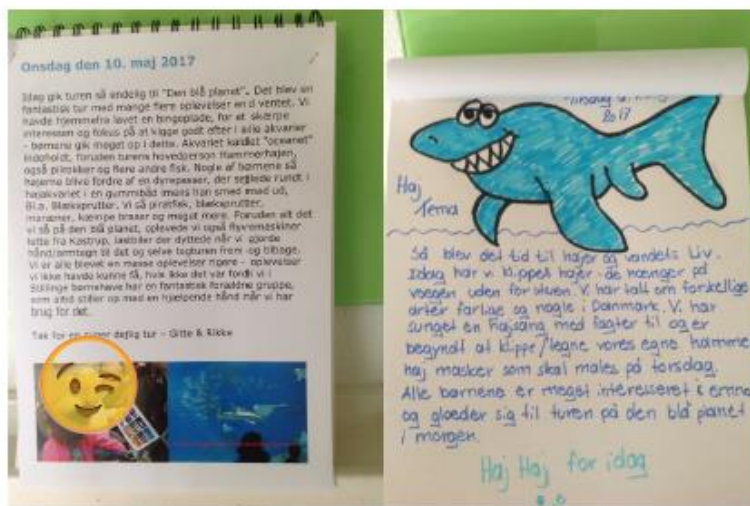 Onsdag den 10. maj 2017
Idag gik turen så endelig til "Den blå planet". Det blev en
fantastisk tur med mange flere oplevelser en d ventet. Vi
havde hjemmefra lavet en bingoplade, for at skærpe
interessen og fokus på at kigge godt efter i alle akvarier
- børnene gik meget op i dette. Akvariet kaldet "oceanet"
indeholdt, foruden turens hovedperson Hammerhajen,
også pilrokker og flere andre fisk. Nogle af børnene så
hajerne blive fodre af en dyrepasser, der sejlede rundt i
hajakvariet i en gummibåd mens han smed mad ud,
Bl.a. Blæksprutter. Vi så piratfisk, blæksprutter,
muræner, kæmpe braser og meget mere. Foruden alt det
vi så på den blå planet, oplevede vi også flyvemaskiner
lette fra Kastrup, lastbiler der dyttede når vi gjorde
hånd/armtegn til det og selve togturen frem og tilbage.
Vi er alle blevet en masse oplevelser rigere - oplevelser
vi ikke havde kunne få, hvis ikke det var fordi vi i
Stillinge børnehave har en fantastisk forældre gruppe,
som altid stiller op med en hjælpende hånd når vi har
brug for det.
Tak for en super dejlig tur - Gitte & Rikke
2017
Haj
Tema
Så blev det tid til hajer og vandets liv.
Idag har vi klippet hajer - de hænger på
væggen uden for stuen. Vi har talt om forskellige
arter farlige og nogle i Danmark. Vi har
sunget en Hajsang med fagter til og er
begyndt at klippe/tegne vores egne hamme
haj masker som skal males på torsdag.
Alle børnene er meget interesseret i emne
og glæder sig til turen på den blå planet
i morgen.
Haj Haj for idag